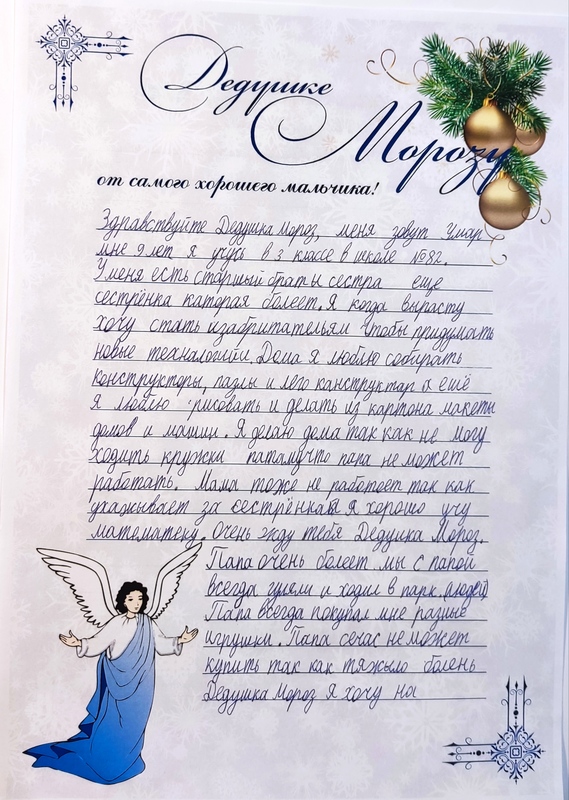 Дедушке
Морозу
от самого хорошего мальчика!
Здравствуйте Дедушка Мороз, меня зовут Умар
мне 9 лет я учусь в 3 классе в школе №82.
У меня есть старший брат и сестра еще
сестрёнка каторая болеет. Я когда вырасту
хочу стать изабритательям чтобы придумать
новые техналогии. Дома я люблю собирать
конструкторы, пазлы и лего канструктар а ещё
я люблю рисовать и делать из картона макеты
домов и машин. Я делаю дома так как не могу
ходить кружки патамучто папа не может
работать. Мама тоже не работает так как
ухаживает за сестрёнкай я хорошо учу
математеку. Очень жду тебя Дедушка Мороз.
Папа очень болеет мы с папой
всегда гуляли и ходили в парк
Папа всегда покупал мне разные
игрушки. Папа сечас не может
купить так как тяжыло болень
Дедушка Мороз я хочу на